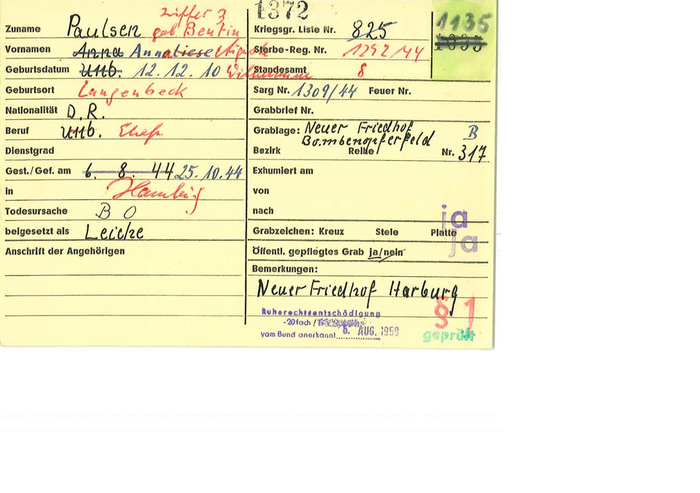 1372
1135
1895
ziffer 3
Zuname Paulsen geb Bentin
Kriegsgr. Liste Nr. 825
Vornamen Anna Annaliese
Sterbe-Reg. Nr. 1292/44
Geburtsdatum Unb. 12.12.10 Wilhelmine
Standesamt 8
Geburtsort Langenbeck
Sarg Nr. 1309/44 Feuer Nr.
Nationalität D.R.
Grabbrief Nr.
Beruf Unb. Ehefr
Grablage: Neuer Friedhof B
Bombenopferfeld
Dienstgrad
Bezirk Reihe Nr. 317
Gest./Gef. am 6. 8. 44 25.10.44
Exhumiert am
in Hamburg
von
Todesursache B O
nach
ja
ja
beigesetzt als Leiche
Grabzeichen: Kreuz Stele Platte
Anschrift der Angehörigen
Öffentl. gepflegtes Grab ja/nein
Bemerkungen:
Neuer Friedhof Harburg
Ruherechtsentschädigung
-20fach /
vom Bund anerkannt 6. AUG. 1959
§ 1
geprüft